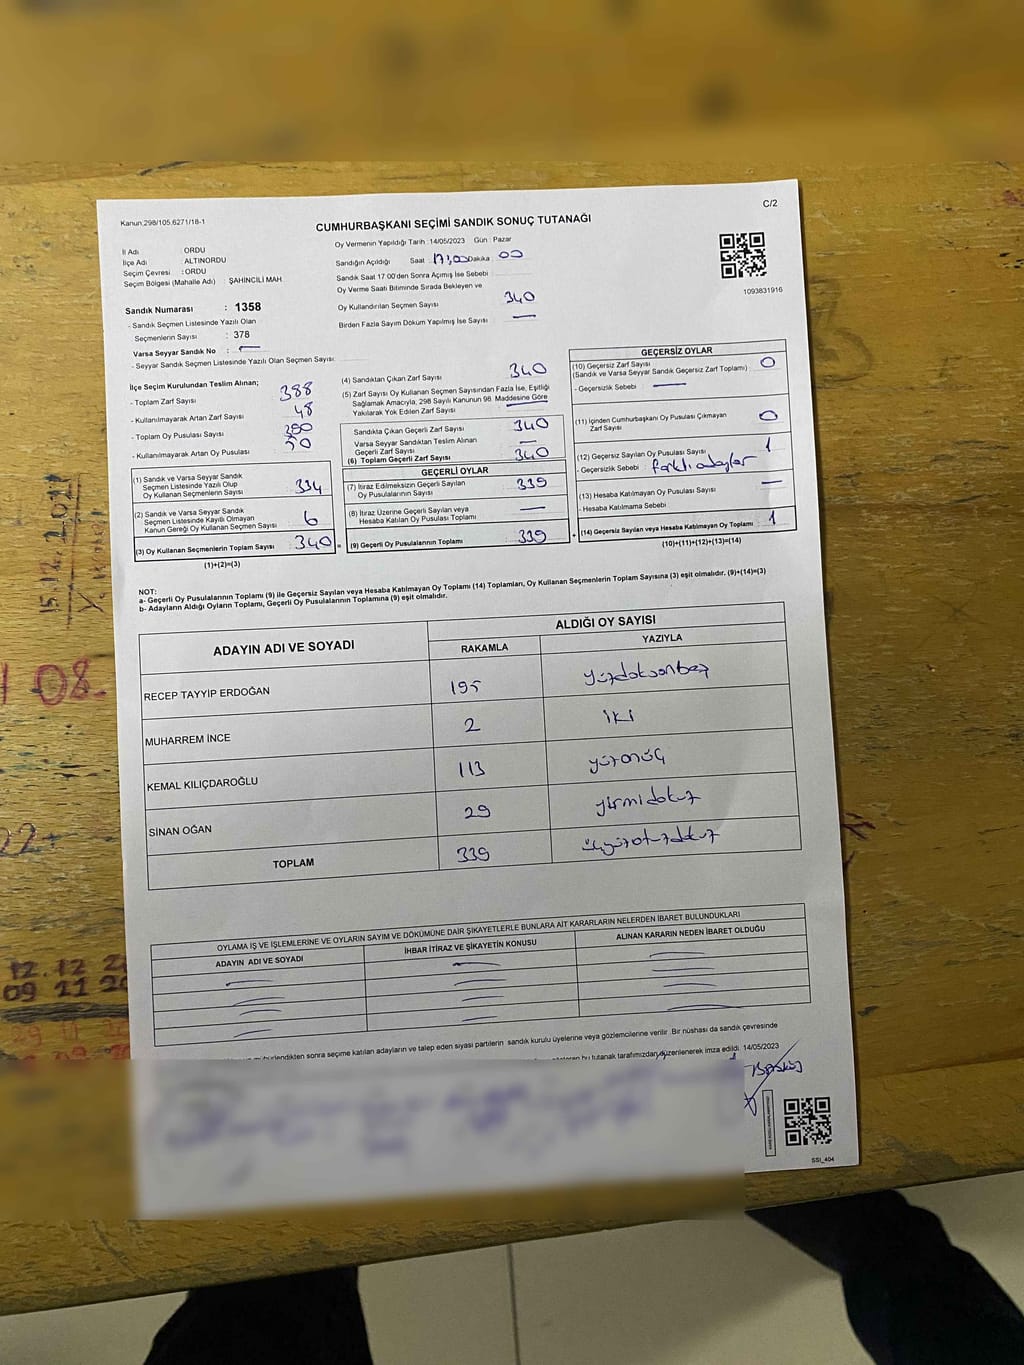 Kanun:298/105.6271/18-1
C/2
CUMHURBAŞKANI SEÇİMİ SANDIK SONUÇ TUTANAĞI
Oy Vermenin Yapıldığı Tarih :14/05/2023 Gün : Pazar
İl Adı : ORDU
İlçe Adı : ALTINORDU
Seçim Çevresi : ORDU
Seçim Bölgesi (Mahalle Adı) : ŞAHİNCİLİ MAH
Sandığın Açıldığı Saat 17,00 Dakika 00
Sandık Saat 17:00'den Sonra Açılmış İse Sebebi
Oy Verme Saati Bitiminde Sırada Bekleyen ve
Oy Kullandırılan Seçmen Sayısı 340
Birden Fazla Sayım Döküm Yapılmış İse Sayısı —
1093831916
Sandık Numarası : 1358
- Sandık Seçmen Listesinde Yazılı Olan
Seçmenlerin Sayısı : 378
Varsa Seyyar Sandık No : —
- Seyyar Sandık Seçmen Listesinde Yazılı Olan Seçmen Sayısı:
İlçe Seçim Kurulundan Teslim Alınan;
- Toplam Zarf Sayısı 388
- Kullanılmayarak Artan Zarf Sayısı 48
- Toplam Oy Pusulası Sayısı
- Kullanılmayarak Artan Oy Pusulası
(1) Sandık ve Varsa Seyyar Sandık
Seçmen Listesinde Yazılı Olup
Oy Kullanan Seçmenlerin Sayısı 334
(2) Sandık ve Varsa Seyyar Sandık
Seçmen Listesinde Kayıtlı Olmayan
Kanun Gereği Oy Kullanan Seçmen Sayısı 6
(3) Oy Kullanan Seçmenlerin Toplam Sayısı 340
(1)+(2)=(3)
(4) Sandıktan Çıkan Zarf Sayısı 340
(5) Zarf Sayısı Oy Kullanan Seçmen Sayısından Fazla İse, Eşitliği
Sağlamak Amacıyla, 298 Sayılı Kanunun 98. Maddesine Göre
Yakılarak Yok Edilen Zarf Sayısı —
Sandıkta Çıkan Geçerli Zarf Sayısı 340
Varsa Seyyar Sandıktan Teslim Alınan
Geçerli Zarf Sayısı —
(6) Toplam Geçerli Zarf Sayısı 340
GEÇERLİ OYLAR
(7) İtiraz Edilmeksizin Geçerli Sayılan
Oy Pusulalarının Sayısı 339
(8) İtiraz Üzerine Geçerli Sayılan veya
Hesaba Katılan Oy Pusulası Toplamı —
= (9) Geçerli Oy Pusulalarının Toplamı 339
GEÇERSİZ OYLAR
(10) Geçersiz Zarf Sayısı
(Sandık ve Varsa Seyyar Sandık Geçersiz Zarf Toplamı) 0
- Geçersizlik Sebebi —
(11) İçinden Cumhurbaşkanı Oy Pusulası Çıkmayan
Zarf Sayısı 0
(12) Geçersiz Sayılan Oy Pusulası Sayısı 1
- Geçersizlik Sebebi farklı adaylar
(13) Hesaba Katılmayan Oy Pusulası Sayısı —
- Hesaba Katılmama Sebebi
+ (14) Geçersiz Sayılan veya Hesaba Katılmayan Oy Toplamı 1
(10)+(11)+(12)+(13)=(14)
NOT:
a- Geçerli Oy Pusulalarının Toplamı (9) ile Geçersiz Sayılan veya Hesaba Katılmayan Oy Toplamı (14) Toplamları, Oy Kullanan Seçmenlerin Toplam Sayısına (3) eşit olmalıdır. (9)+(14)=(3)
b- Adayların Aldığı Oyların Toplamı, Geçerli Oy Pusulalarının Toplamına (9) eşit olmalıdır.
ADAYIN ADI VE SOYADI ALDIĞI OY SAYISI
RAKAMLA YAZIYLA
RECEP TAYYİP ERDOĞAN 195 yüzdoksanbeş
MUHARREM İNCE 2 iki
KEMAL KILIÇDAROĞLU 113 yüzonüç
SİNAN OĞAN 29 yirmidokuz
TOPLAM 339 üçyüzotuzdokuz
OYLAMA İŞ VE İŞLEMLERİNE VE OYLARIN SAYIM VE DÖKÜMÜNE DAİR ŞİKAYETLERLE BUNLARA AİT KARARLARIN NELERDEN İBARET BULUNDUKLARI
ADAYIN ADI VE SOYADI İHBAR İTİRAZ VE ŞİKAYETİN KONUSU ALINAN KARARIN NEDEN İBARET OLDUĞU
mühürlendikten sonra seçime katılan adayların ve talep eden siyasi partilerin sandık kurulu üyelerine veya gözlemcilerine verilir. Bir nüshası da sandık çevresinde
bu tutanak tarafımızdan düzenlenerek imza edildi. 14/05/2023
SSI_404
15.12.2021
08.
22+
12.12
09 11 20